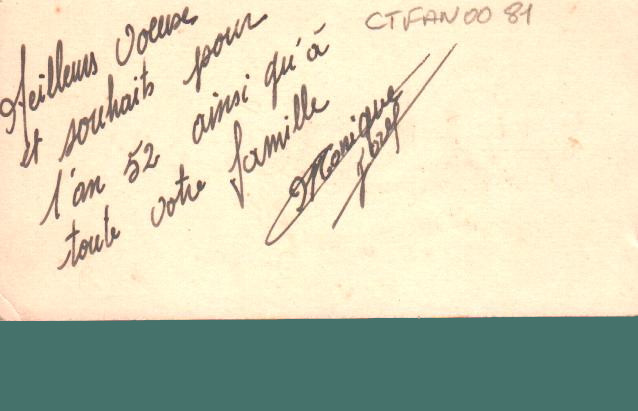 Meilleurs voeux
et souhaits pour
l'an 52 ainsi qu'à
toute votre famille
Monique
CTFAN00 81